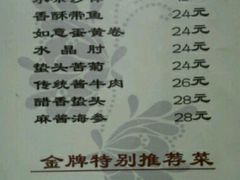 香酥带鱼 24元
如意蛋黄卷 24元
水晶肘 24元
蛰头苦菊 24元
传统酱牛肉 26元
醋香蛰头 28元
麻酱海参 28元
金牌特别推荐菜